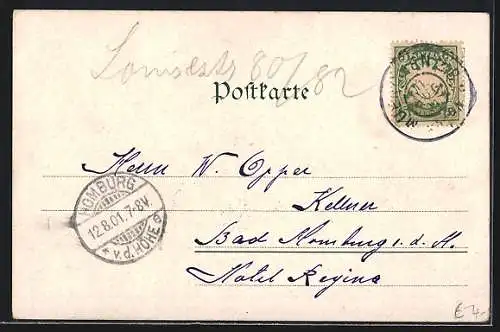 Louisestr 80/82
Postkarte
Herrn W. Opper
Kellner
Bad Homburg v. d. H.
Hotel Regina
HOMBURG
12.8.01.7-8V.
* v.d.HÖHE
€4-